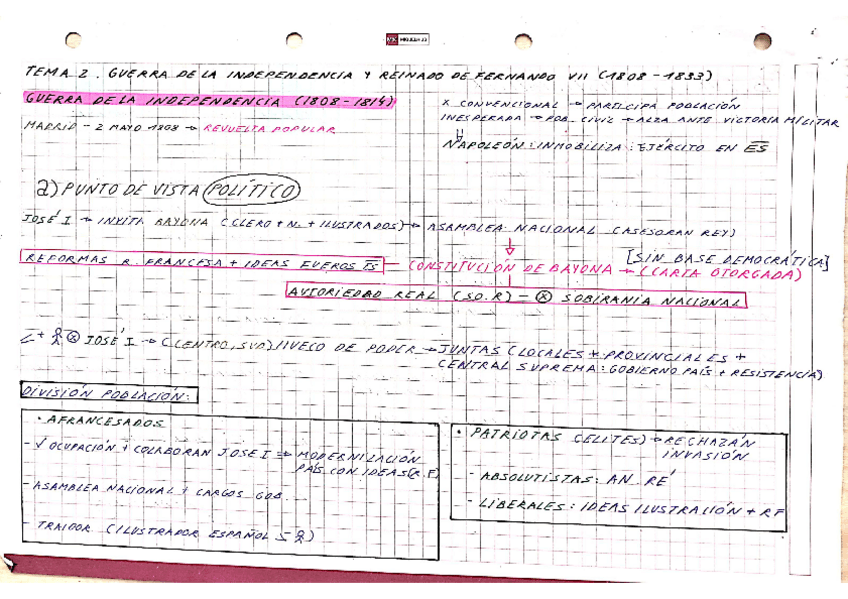 TEMA 2. GUERRA DE LA INDEPENDENCIA Y REINADO DE FERNANDO VII (1808-1833)
GUERRA DE LA INDEPENDENCIA (1808-1814)
MADRID - 2 MAYO 1808 → REVUELTA POPULAR
X CONVENCIONAL → PARTICIPA POBLACIÓN
INESPERADA → POB. CIVIL → ALZA ANTE VICTORIA MILITAR
NAPOLEÓN: INMOBILIZA: EJÉRCITO EN ES
a) PUNTO DE VISTA POLÍTICO
JOSÉ I → INVITA BAYONA (CLERO + N. + ILUSTRADOS) → ASAMBLEA NACIONAL (ASESORAN REY)
REFORMAS R. FRANCESA + IDEAS EUROS ES — CONSTITUCIÓN DE BAYONA → (CARTA OTORGADA)
[SIN BASE DEMOCRÁTICA]
AUTORIEDAD REAL (SO.R) - ⓧ SOBIRANIA NACIONAL
ⓧ JOSÉ I → (CENTRO, SUD) HUECO DE PODER → JUNTAS (LOCALES + PROVINCIALES +
CENTRAL SUPREMA: GOBIERNO PAÍS + RESISTENCIA)
DIVISIÓN POBLACIÓN:
• AFRANCESADOS
- √ OCUPACIÓN + COLABORAN JOSE I → MODERNIZACIÓN
PAÍS CON IDEAS (R.F)
- ASAMBLEA NACIONAL + CARGOS GOB...
- TRAIDOR (ILUSTRADOR ESPAÑOL
• PATRIOTAS (ELITES) → RECHAZÁN
INVASIÓN
- ABSOLUTISTAS: AN. RÉ
- LIBERALES: IDEAS ILUSTRACIÓN + RF